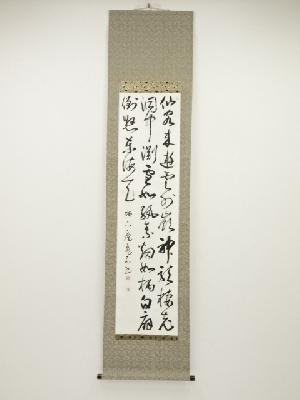 仙客来遊雲外巓神龍棲老
洞中淵雪如紈素烟如柄白扇
倒懸東海天